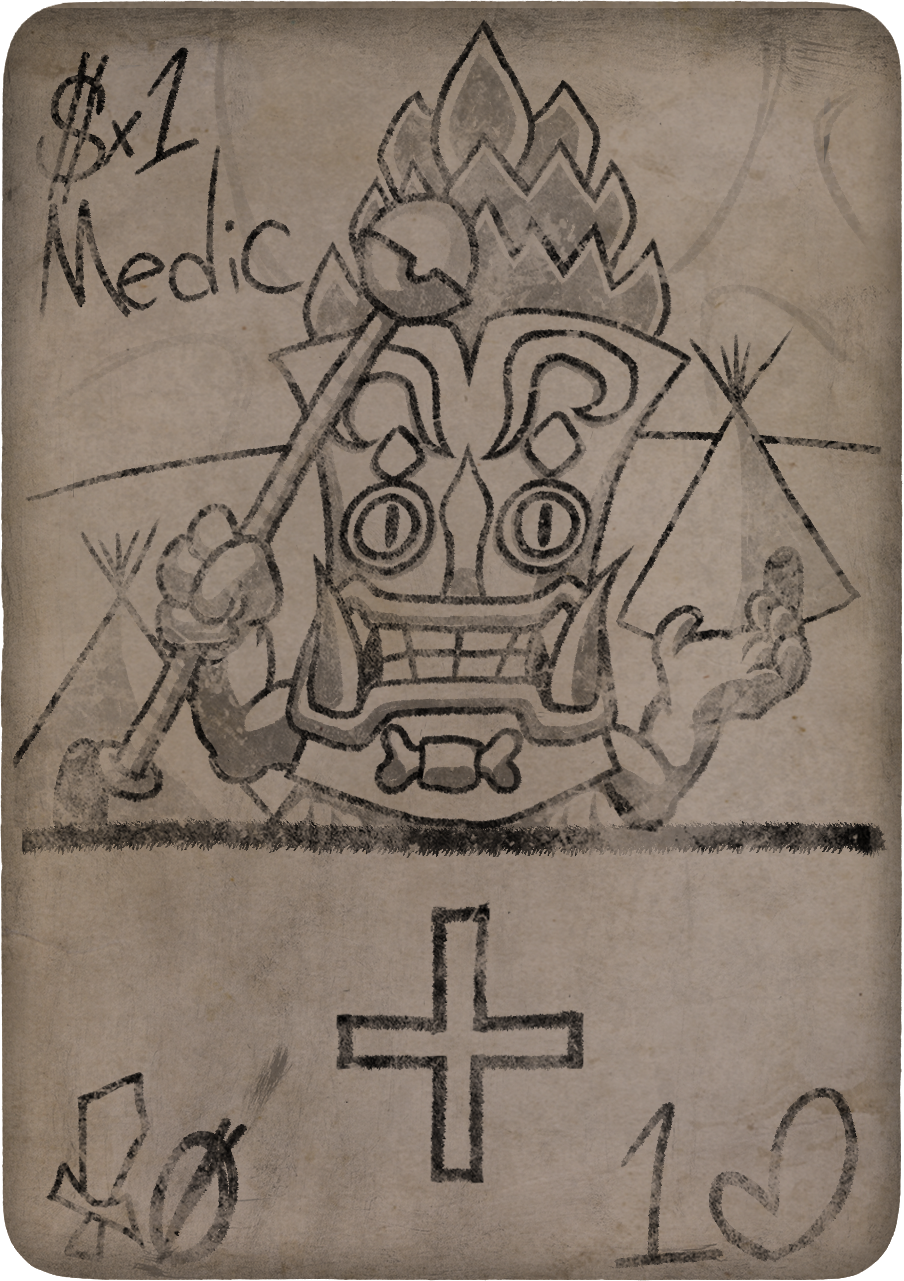 $x1
Medic
Ø 1